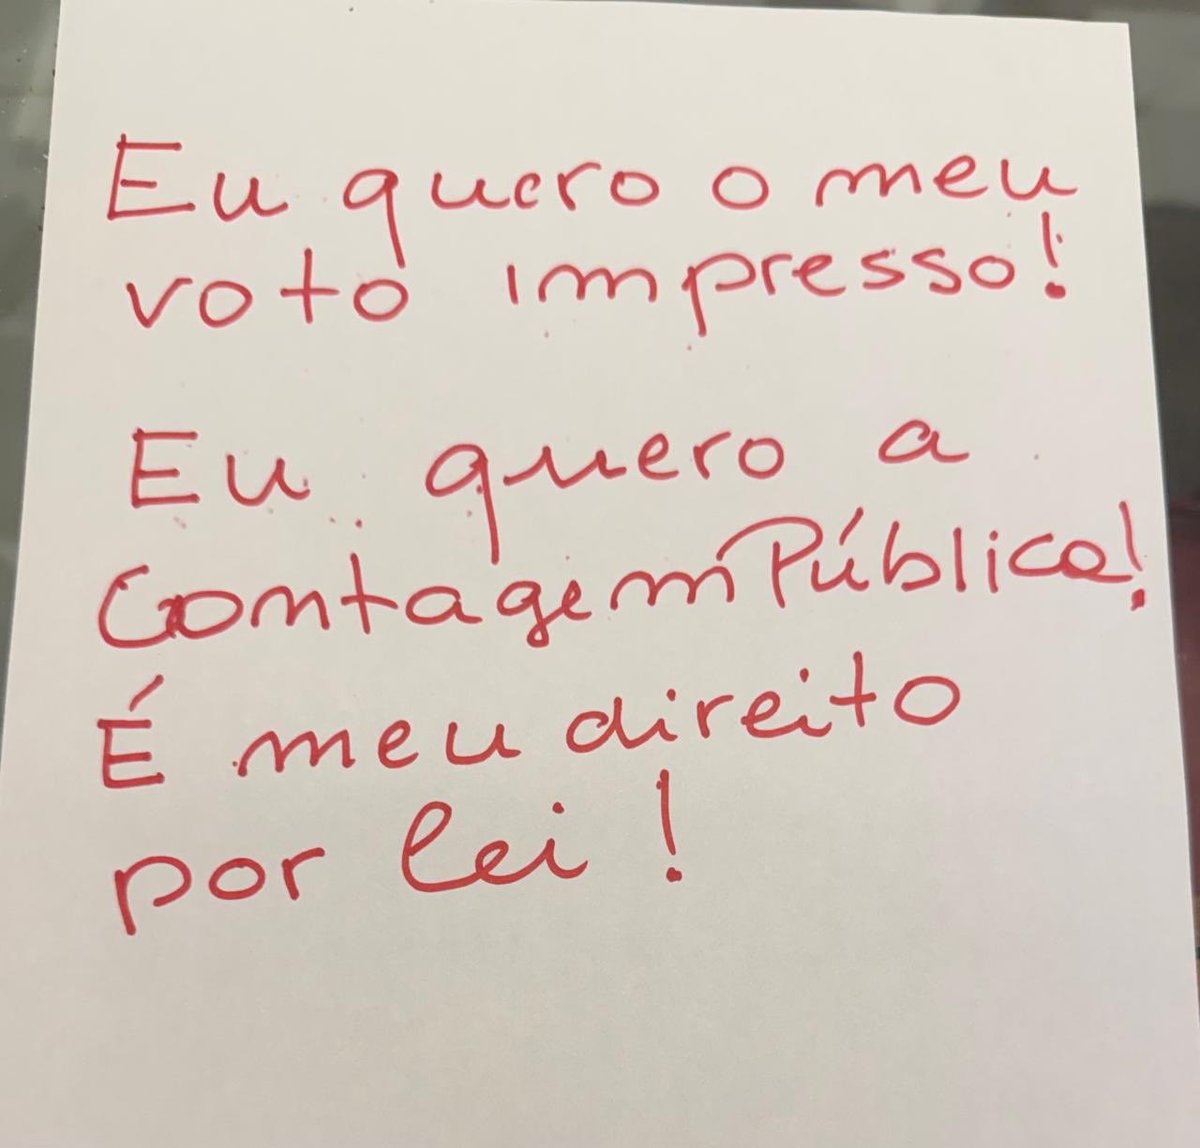 Eu quero o meu
voto impresso!
Eu quero a
Contagem Pública!
É meu direito
por lei!